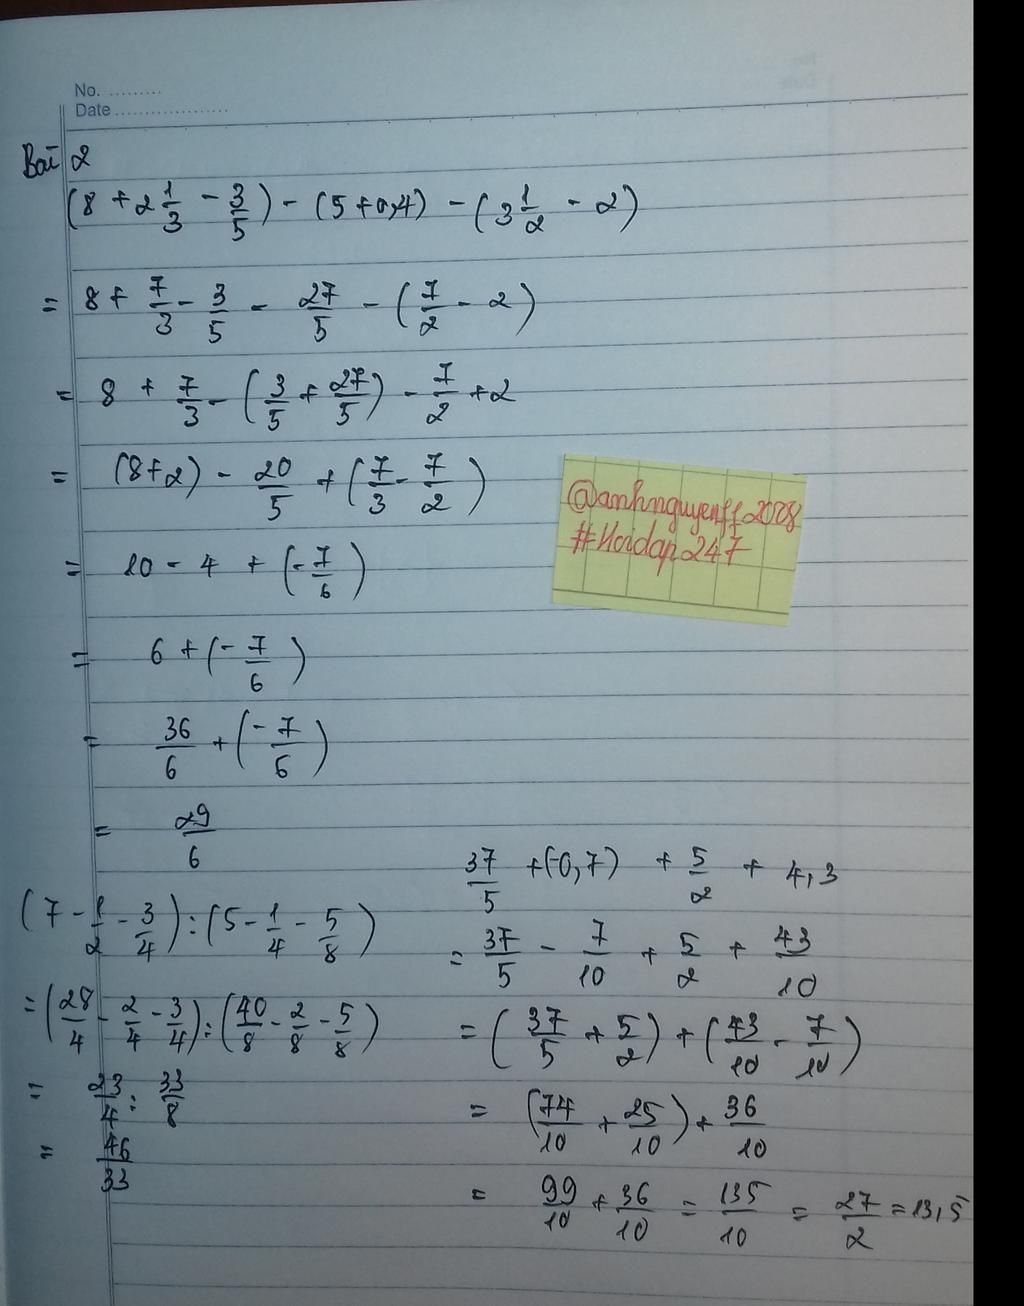 No. .........
Date ...................
Bài 2
(8 + 2 1/3 - 3/5) - (5 + 0,4) - (3 1/2 - 2)
= 8 + 7/3 - 3/5 - 27/5 - (7/2 - 2)
= 8 + 7/3 - (3/5 + 27/5) - 7/2 + 2
= (8+2) - 20/5 + (7/3 - 7/2)
= 10 - 4 + (-7/6)
= 6 + (-7/6)
= 36/6 + (-7/6)
= 29/6
@anhnguyenff2008
#Hoidap247
(7 - 1/2 - 3/4) : (5 - 1/4 - 5/8)
= (28/4 - 2/4 - 3/4) : (40/8 - 2/8 - 5/8)
= 23/4 : 33/8
= 46/33
37/5 + (-0,7) + 5/2 + 4,3
= 37/5 - 7/10 + 5/2 + 43/10
= (37/5 + 5/2) + (43/10 - 7/10)
= (74/10 + 25/10) + 36/10
= 99/10 + 36/10 = 135/10 = 27/2 = 13,5